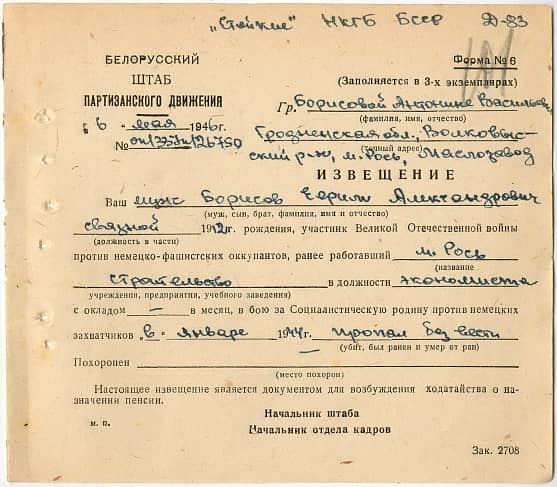 „Стойкие" НКГБ Бсср Д-83
БЕЛОРУССКИЙ
ШТАБ
ПАРТИЗАНСКОГО ДВИЖЕНИЯ
Форма № 6
(Заполняется в 3-х экземплярах)
Гр. Борисовой Антонине Васильевне
(фамилия, имя, отчество)
„6 " мая 1946г.
Гродненская обл., Волковыс-
(точный адрес)
ский р-н, м. Рось, Маслозавод
ИЗВЕЩЕНИЕ
Ваш муж Борисов Александрович
(муж, сын, брат, фамилия, имя и отчество)
связной 1912г. рождения, участник Великой Отечественной войны
(должность в части)
против немецко-фашистских оккупантов, ранее работавший м. Рось
(название
строительство в должности экономиста
учреждения, предприятия, учебного заведения)
с окладом — в месяц, в бою за Социалистическую родину против немецких
захватчиков „в" январе 1944г. пропал без вести
(убит, был ранен и умер от ран)
Похоронен —
(место похорон)
Настоящее извещение является документом для возбуждения ходатайства о на-
значении пенсии.
Начальник штаба
м. п.
Начальник отдела кадров
Зак. 2708